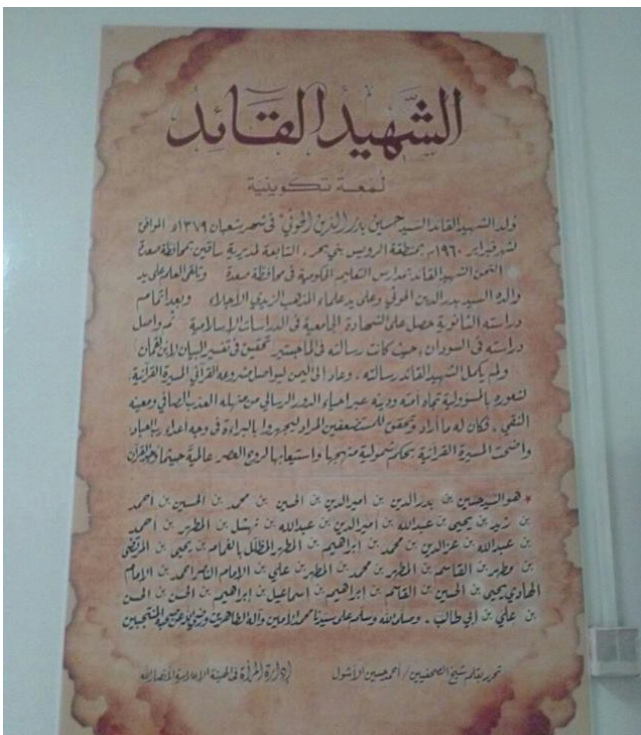 الشهيد القائد
لمعة تكوينية
ولد الشهيد القائد السيد حسين بدر الدين الحوثي في شهر شعبان ١٣٧٩هـ الموافق
لشهر فبراير ١٩٦٠م بمنطقة الرويس بني بحر . التابعة لمديرية ساقين بمحافظة صعدة
التحق الشهيد القائد بمدارس التعليم الحكومية في محافظة صعدة وتلقى العلم على يد
والده السيد بدر الدين الحوثي وعلى يد علماء المذهب الزيدي الأجلاء وبعد اتمامه
دراسته الثانوية حصل على الشهادة الجامعية في الدراسات الإسلامية ثم واصل
دراسته في السودان ، حيث كانت رسالته في الماجستير تحقيق في تفسير البيان لابن لقمان
ولم يكمل الشهيد القائد رسالته ، وعاد الى اليمن ليواصل مشروعه القرآني المسيرة القرآنية
لشعوره بالمسؤولية تجاه أمته ودينه عبر احياء الدور الرسالي من منهله العذب الصافي ومعينه
النقي ، فكان له ما أراد وتحقق للمستضعفين المراد ليجهروا بالبراءة في وجه أعداء رب العباد
واضحت المسيرة القرآنية بحكم شمولية منهجها واستيعابها لروح العصر عالمية حيثما القرآن
* هو السيد حسين بن بدر الدين بن أمير الدين بن الحسين بن محمد بن الحسين بن احمد
بن زيد بن يحيى بن عبدالله بن أمير الدين بن عبدالله بن نهشل بن المطهر بن احمد
بن عبدالله بن عز الدين بن محمد بن إبراهيم بن المطهر المظلل بالغمامه بن يحيى بن المرتضى
بن مطهر بن القاسم بن المطهر بن محمد بن المطهر بن علي بن الامام الناصر احمد بن الامام
الهادي يحيى بن الحسين بن القاسم بن إبراهيم بن اسماعيل بن إبراهيم بن الحسن بن الحسن
بن علي بن أبي طالب . وصلى الله وسلم على سيدنا محمد الامين وآله الطاهرين ورضي الله عن صحبه المنتجبين
تحرير بقلم شيخ الصحفيين / أحمد حسين الأشول
إدارة المرأة في الهيئة الاعلامية لأنصار الله